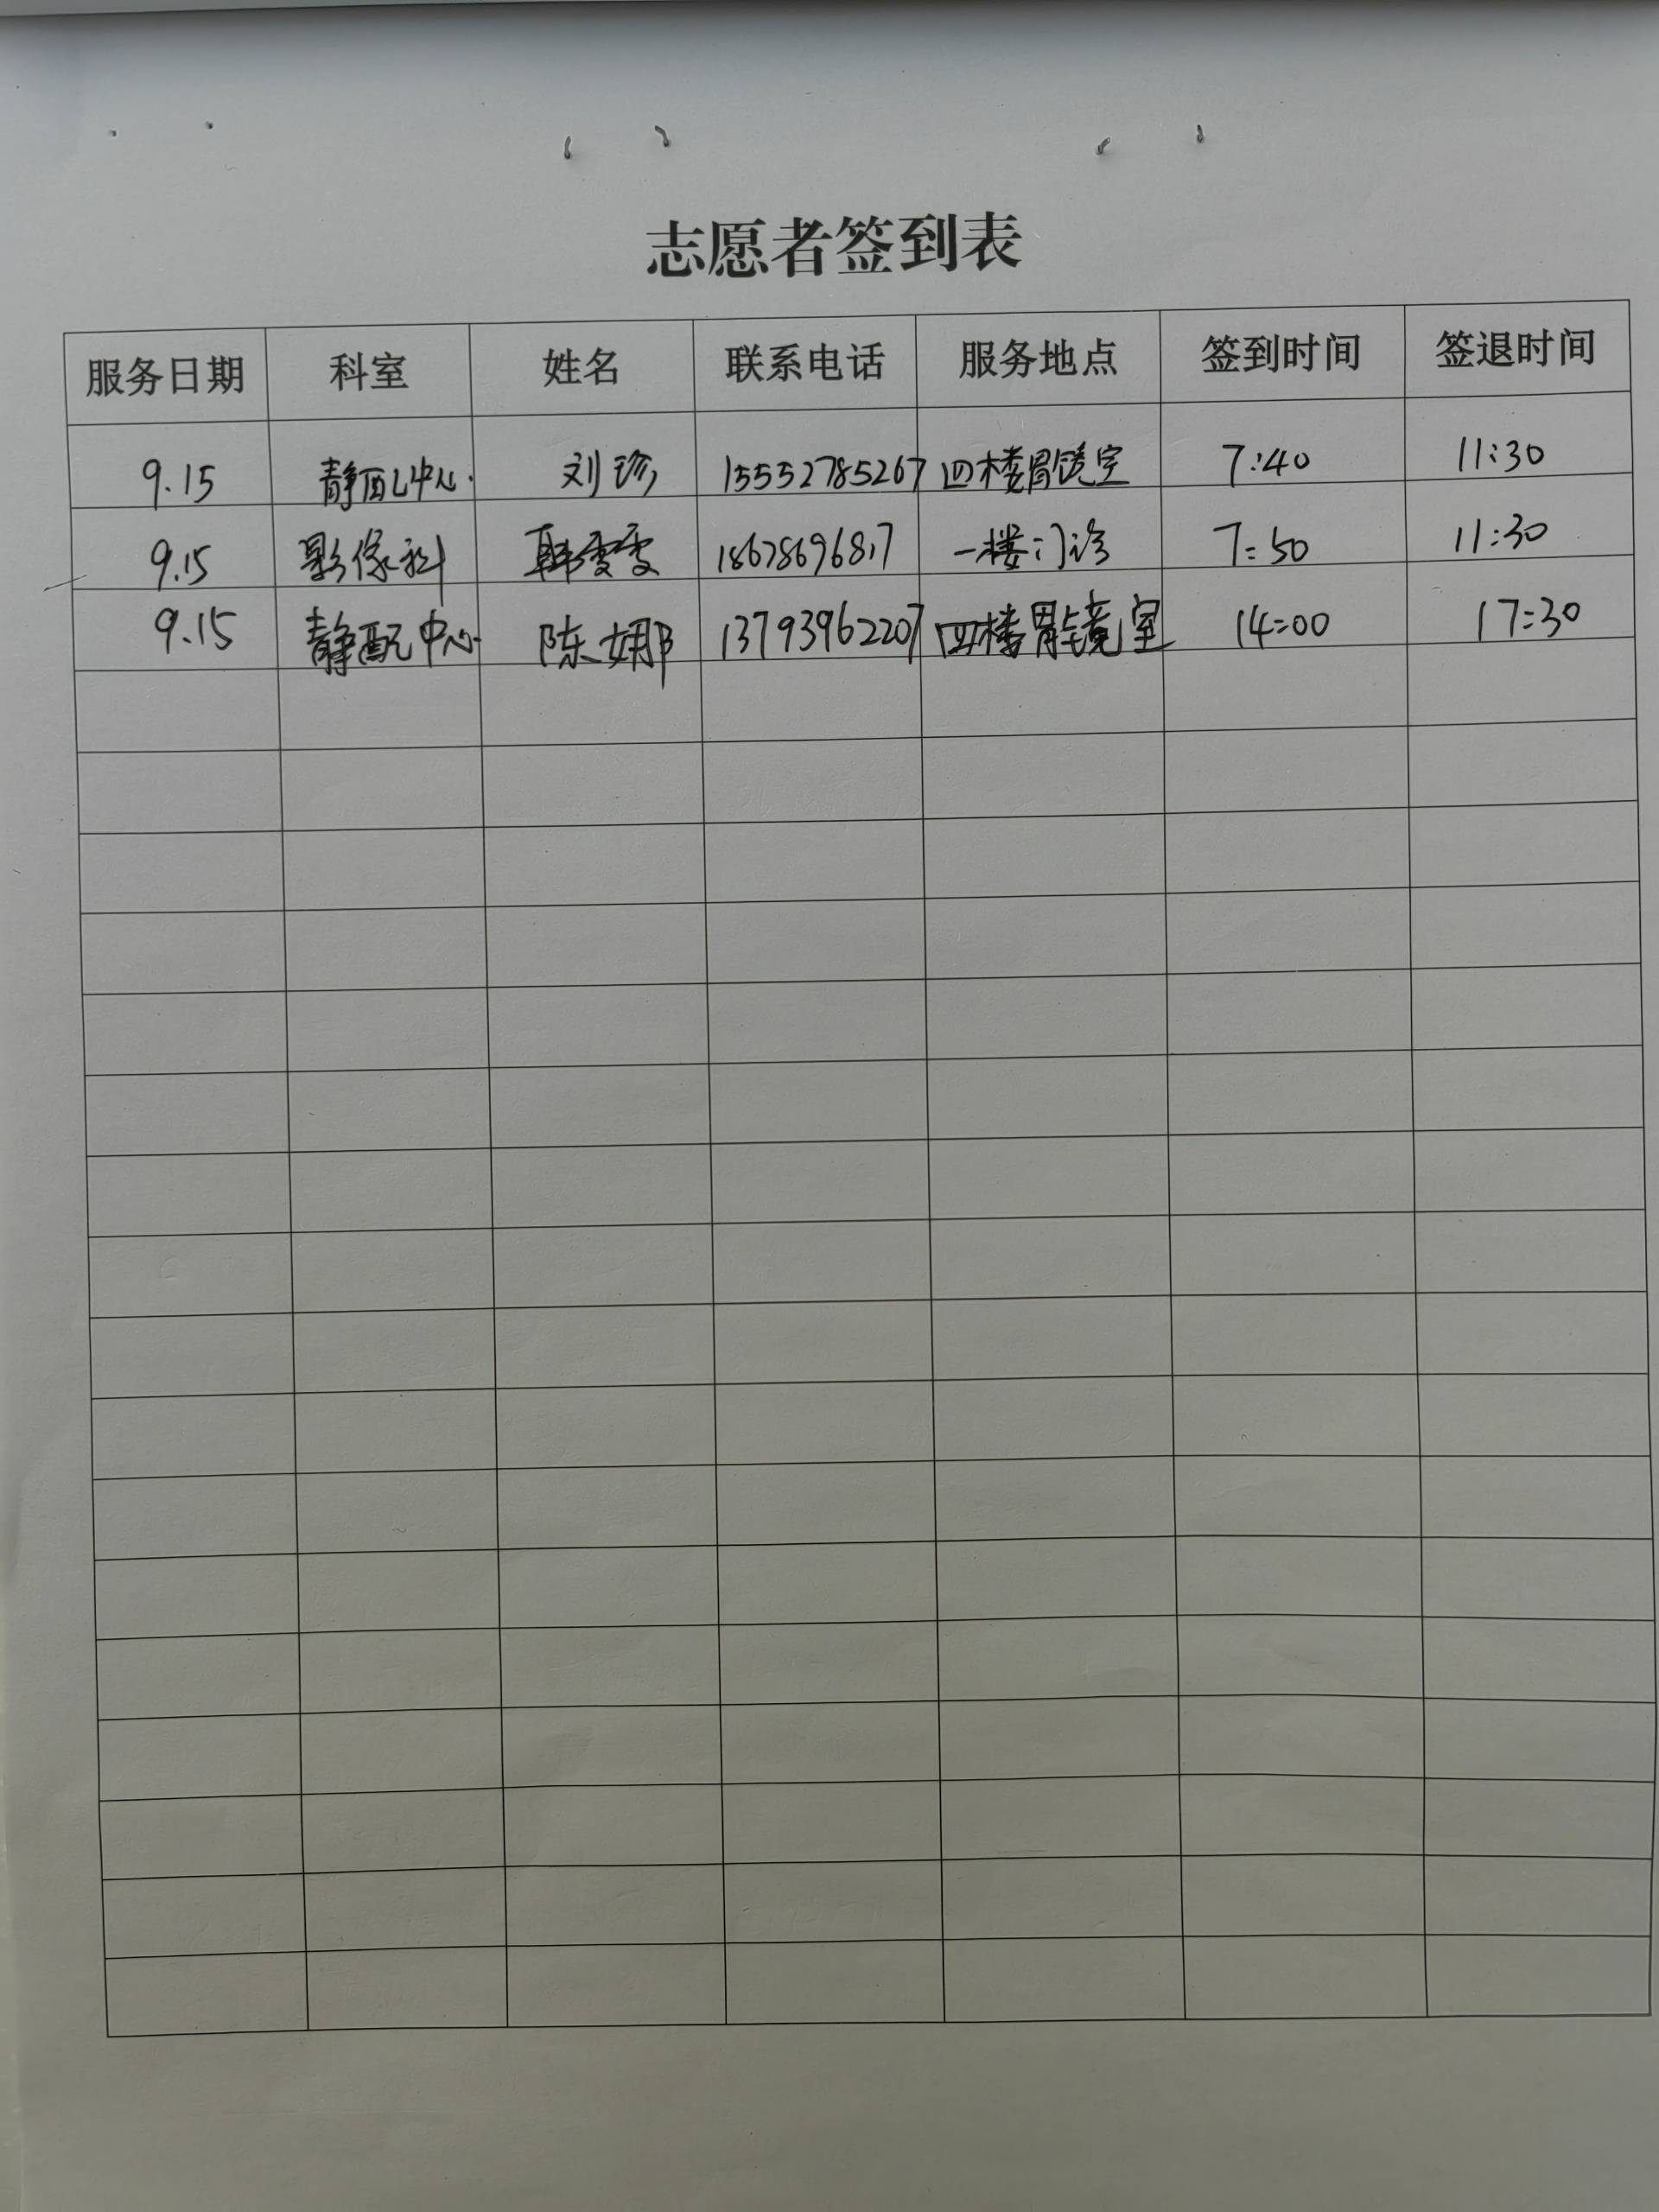 志愿者签到表
服务日期 科室 姓名 联系电话 服务地点 签到时间 签退时间
9.15 静配中心 刘珍 15552785267 四楼胃镜室 7:40 11:30
9.15 影像科 韩雯雯 18678696817 一楼门诊 7:50 11:30
9.15 静配中心 陈娜 13793962207 四楼胃镜室 14:00 17:30